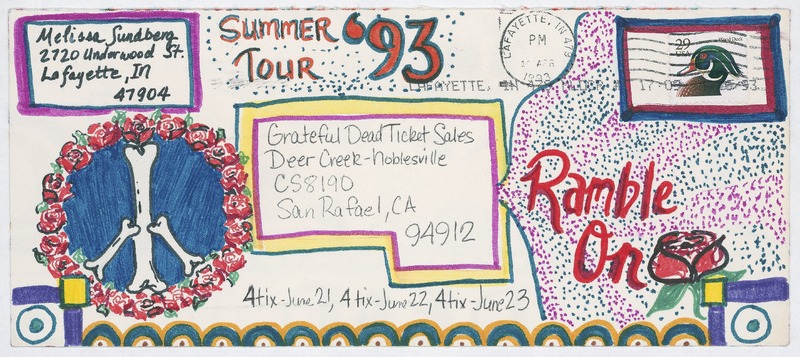 Melissa Sundberg
2720 Underwood St.
Lafayette, IN
47904
SUMMER '93
TOUR
LAFAYETTE, IN
PM
APR
1993
29
USA
Wood Duck
LAFAYETTE, IN
Grateful Dead Ticket Sales
Deer Creek-Noblesville
CS8190
San Rafael, CA
94912
Ramble
On
4tix-June 21, 4tix-June 22, 4tix-June 23